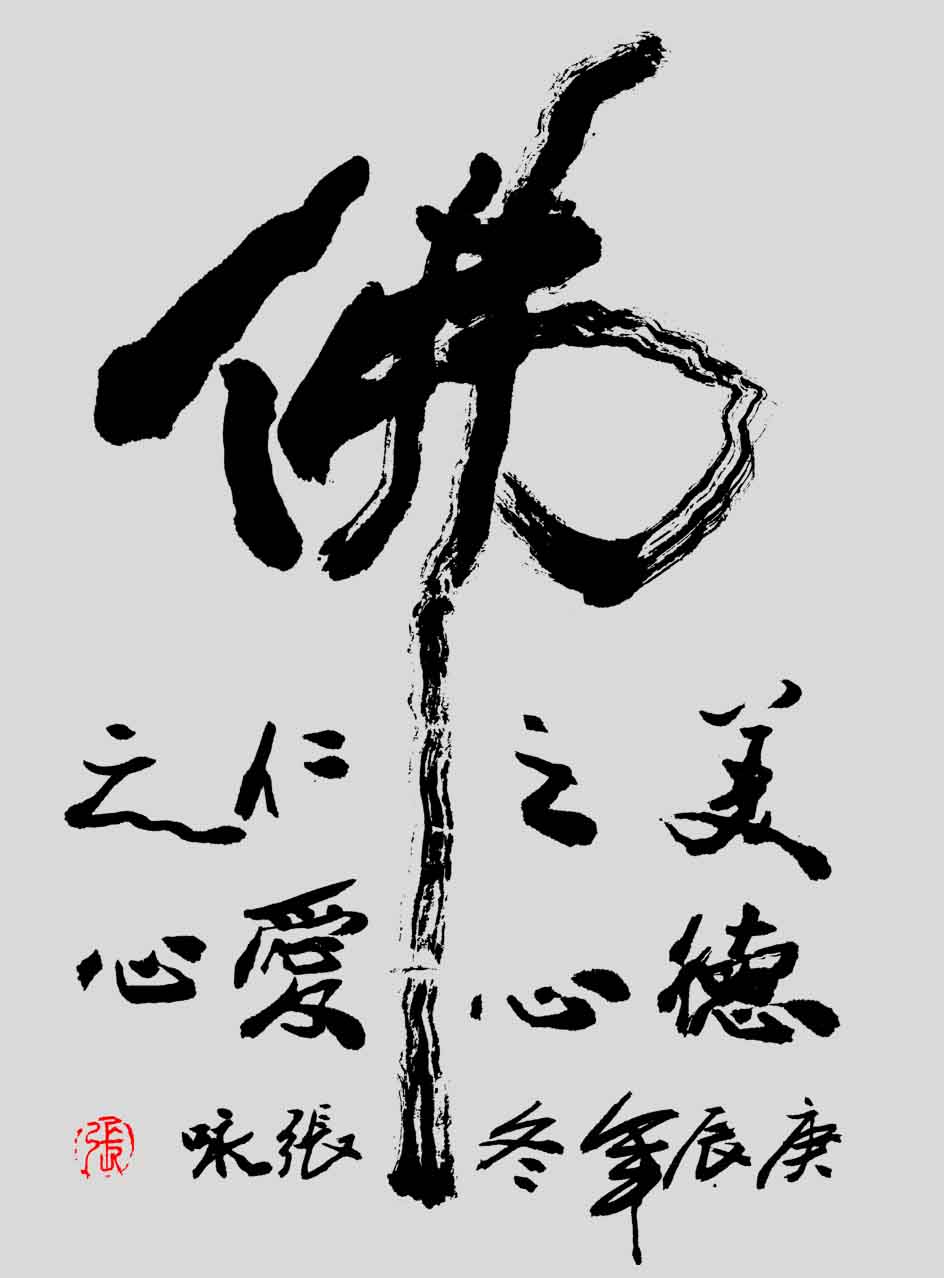 佛
美德
之心
仁愛
之心
庚辰年冬
張咏
張